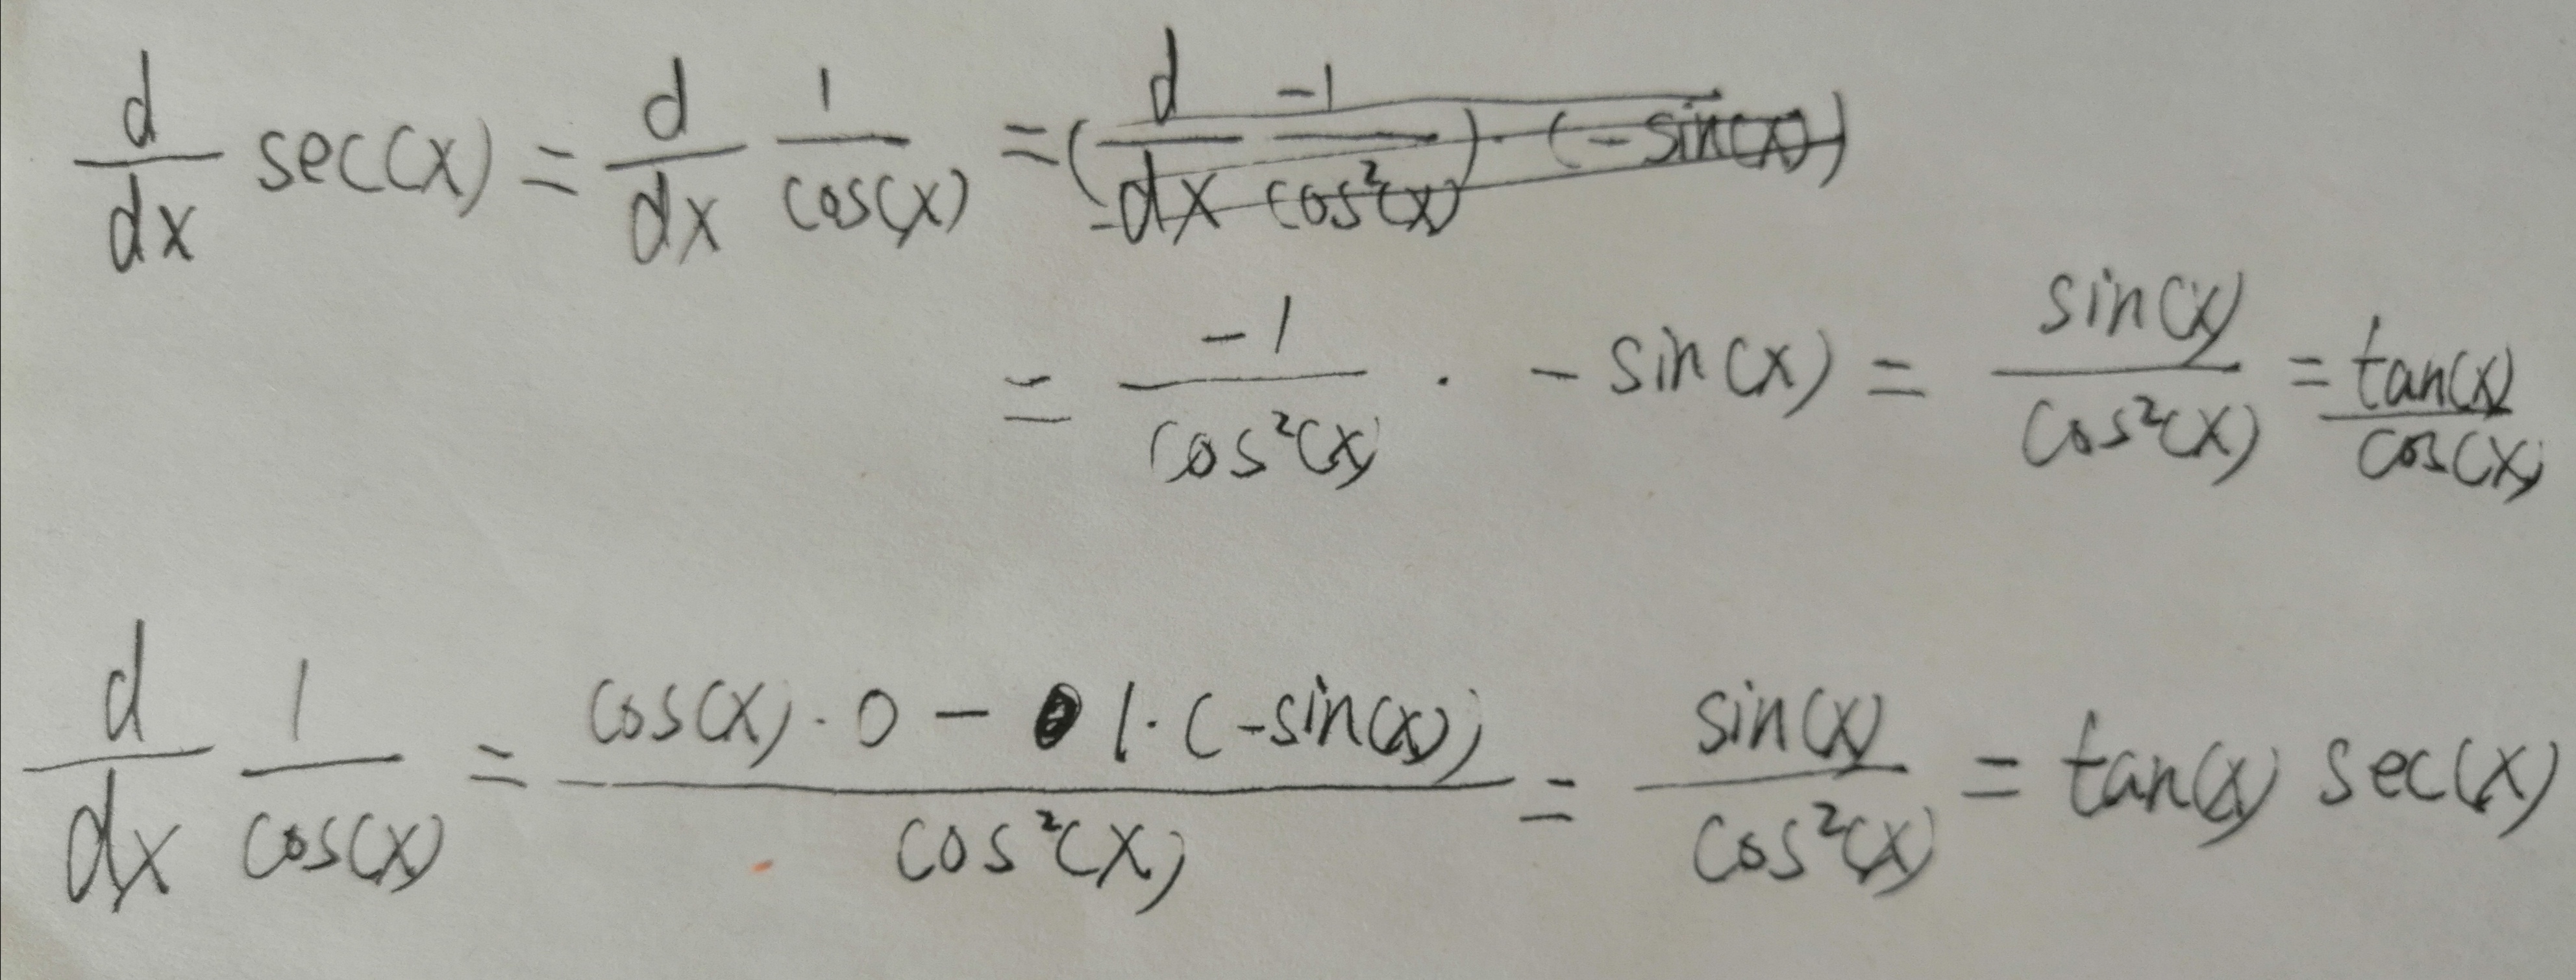 d/dx sec(x) = d/dx 1/cos(x) = (d/dx -1/cos²(x)) · (-sin(x))
= -1/cos²(x) · -sin(x) = sin(x)/cos²(x) = tan(x)/cos(x)
d/dx 1/cos(x) = (cos(x)·0 - 1·(-sin(x)))/cos²(x) = sin(x)/cos²(x) = tan(x) sec(x)